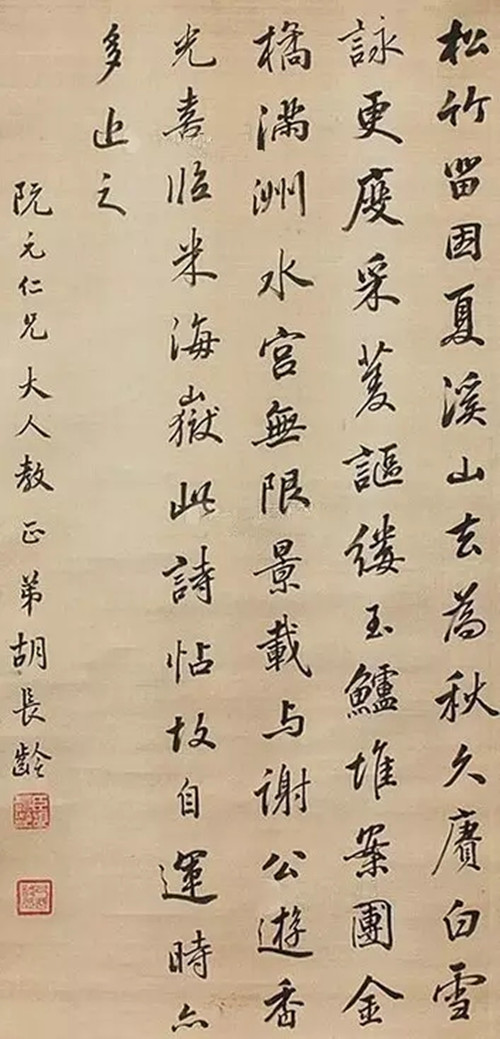 松竹留因夏溪山去為秋久賡白雪
詠更度采菱謳縷玉鱸堆案團金
橘滿洲水宮無限景載与謝公遊香
光喜临米海嶽此詩帖故自運時亦
多近之
阮元仁兄大人教正弟胡長齡